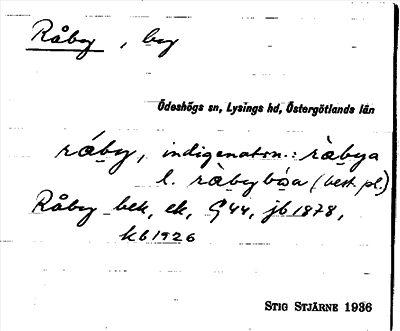 Råby, by
Ödeshögs sn, Lysings hd, Östergötlands län
ráby, indigenatn.: ràbya
l. ràbybòa (best. pl.)
Råby bek, ek, G44, jb 1878,
kb 1926
STIG STJÄRNE 1936